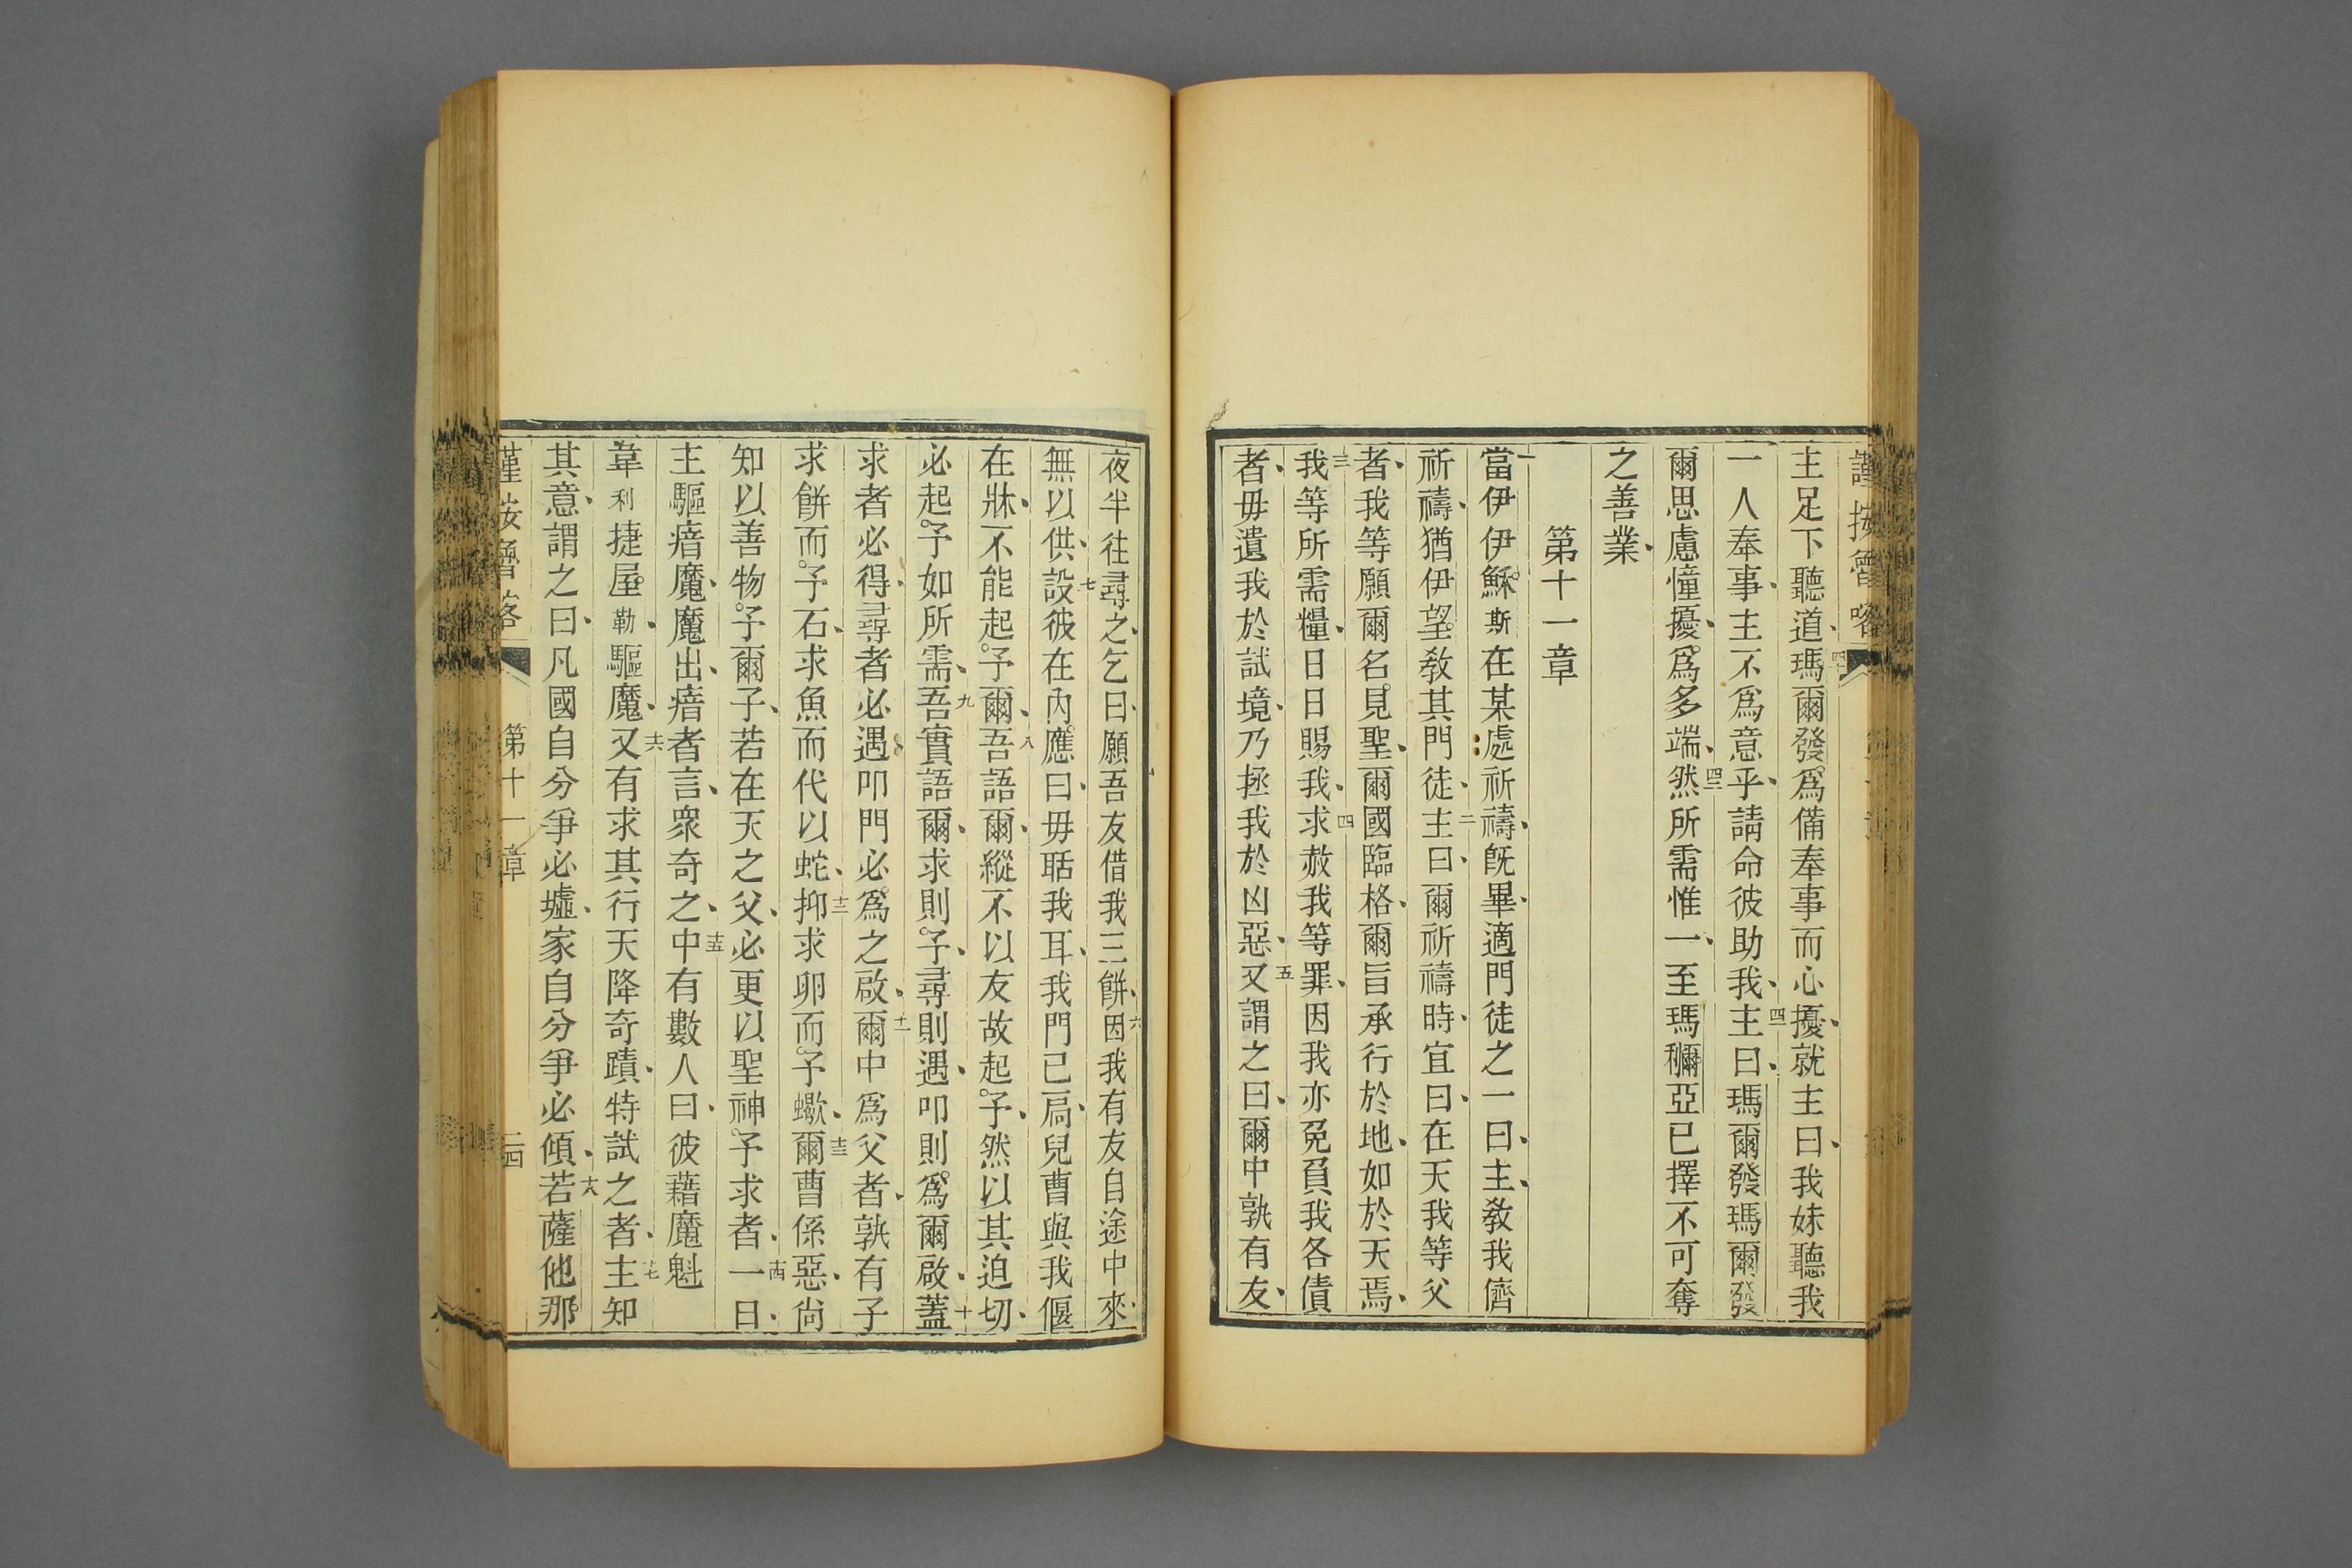 謹按魯喀
主足下聽道瑪爾發爲備奉事而心擾就主曰我妹聽我
一人奉事主不爲意乎請命彼助我主曰瑪爾發瑪爾發
爾思慮憧擾爲多端然所需惟一至瑪穪亞已擇不可奪
之善業
第十一章
當伊伊穌斯在某處祈禱旣畢適門徒之一曰主敎我儕
祈禱猶伊望敎其門徒主曰爾祈禱時宜曰在天我等父
者我等願爾名見聖爾國臨格爾旨承行於地如於天焉
我等所需糧日日賜我求赦我等罪因我亦免負我各債
者毋遺我於試境乃拯我於凶惡又謂之曰爾中孰有友
夜半往尋之乞曰願吾友借我三餅因我有友自途中來
無以供設彼在內應曰毋聒我耳我門已扃兒曹與我偃
在牀不能起予爾吾語爾縱不以友故起予然以其迫切
必起予如所需吾實語爾求則予尋則遇叩則爲爾啟蓋
求者必得尋者必遇叩門必爲之啟爾中爲父者孰有子
求餅而予石求魚而代以蛇抑求卵而予蠍爾曹係惡尙
知以善物予爾子若在天之父必更以聖神予求者一日
主驅瘖魔魔出瘖者言衆奇之中有數人曰彼藉魔魁
韋利捷屋勒驅魔又有求其行天降奇蹟特試之者主知
其意謂之曰凡國自分爭必墟家自分爭必傾若薩他那
謹按魯喀 第十一章 二四